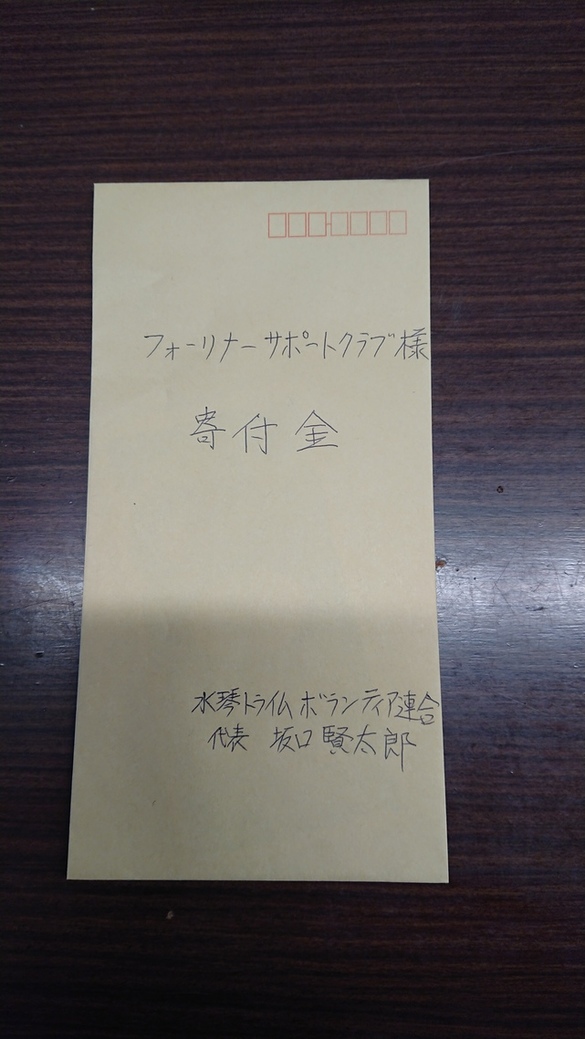 フォーリナーサポートクラブ様
寄付金
水琴トライムボランティア連合
代表 坂口賢太郎